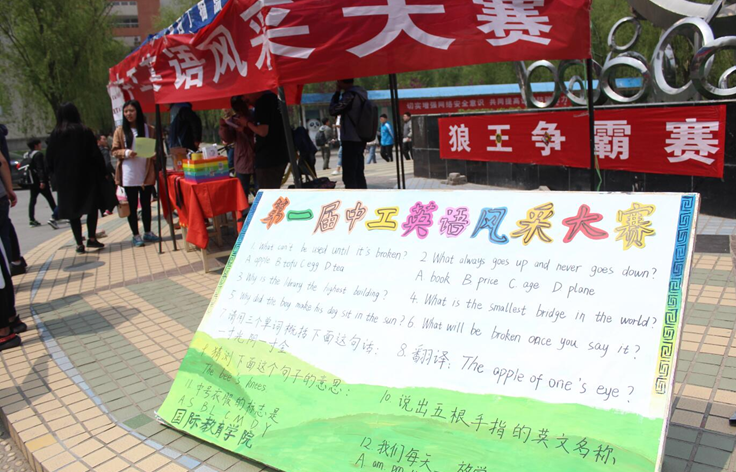 英语风采大赛
英语风采大赛
切实增强网络安全意识 共同
狼王争霸赛
第一届中工英语风采大赛
1. What can't be used until it's broken?
A apple B tofu C egg D tea
2. What always goes up and never goes down?
A. book B price C. age D plane
3. Why is the library the highest building?
4. What is the smallest bridge in the world?
5. Why did the boy make his dog sit in the sun?
6. What will be broken once you say it?
7. 请用三个单词概括下面这句话:
8. 翻译: The apple of one's eye?
9. 猜测下面这个句子的意思:
The bee's knees
10. 说出五根手指的英文名称.
11. 中号衣服的标志是
A S B L C M D Y
12. 我们每天
国际教育学院